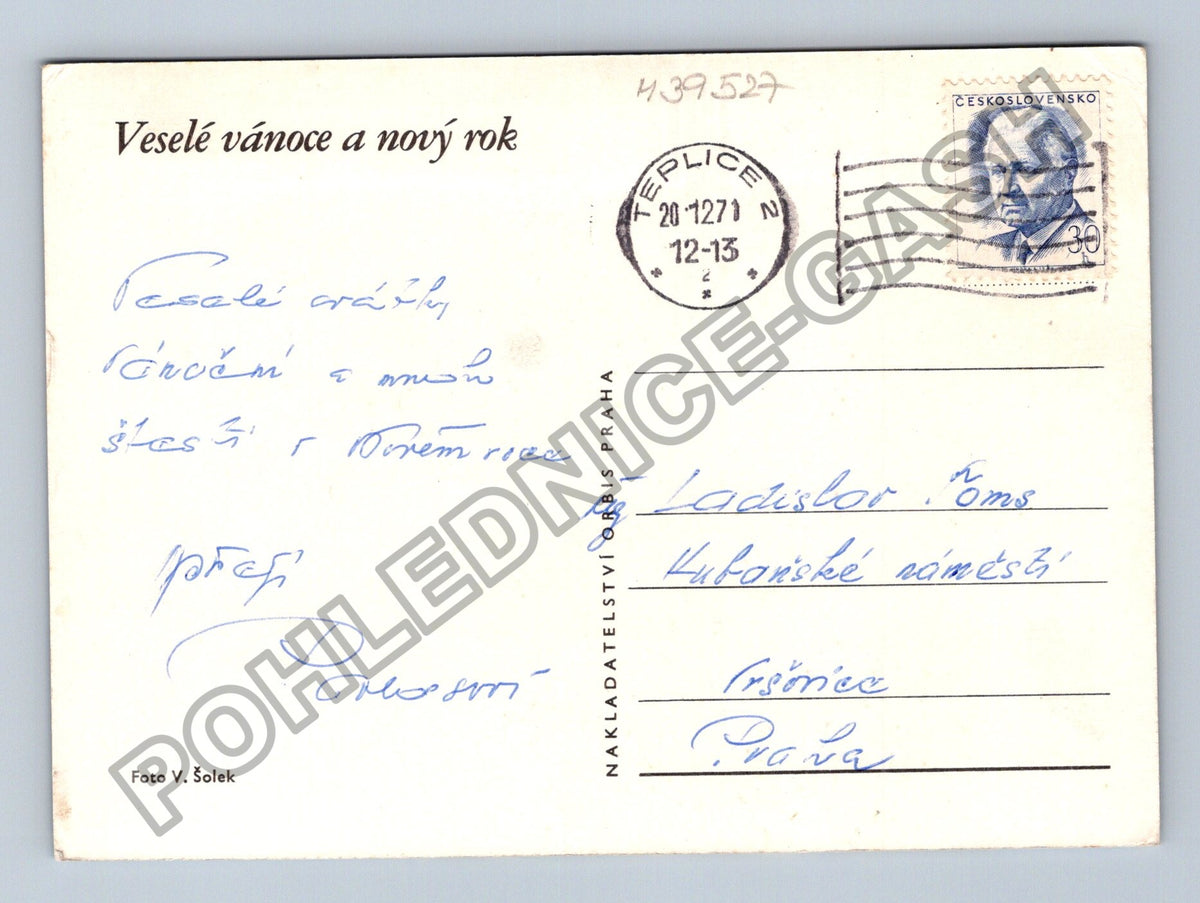 439527
ČESKOSLOVENSKO
30
h
TEPLICE 2
20.1271
12-13
2
Veselé vánoce a nový rok
Veselé svátky
Vánoční a mnoho
štěstí v Novém roce
přejí
Foto V. Šolek
NAKLADATELSTVÍ ORBIS PRAHA
Ladislav Toms
Kubaňské náměstí
Vršovice
Praha
POHLEDNICE-GASH